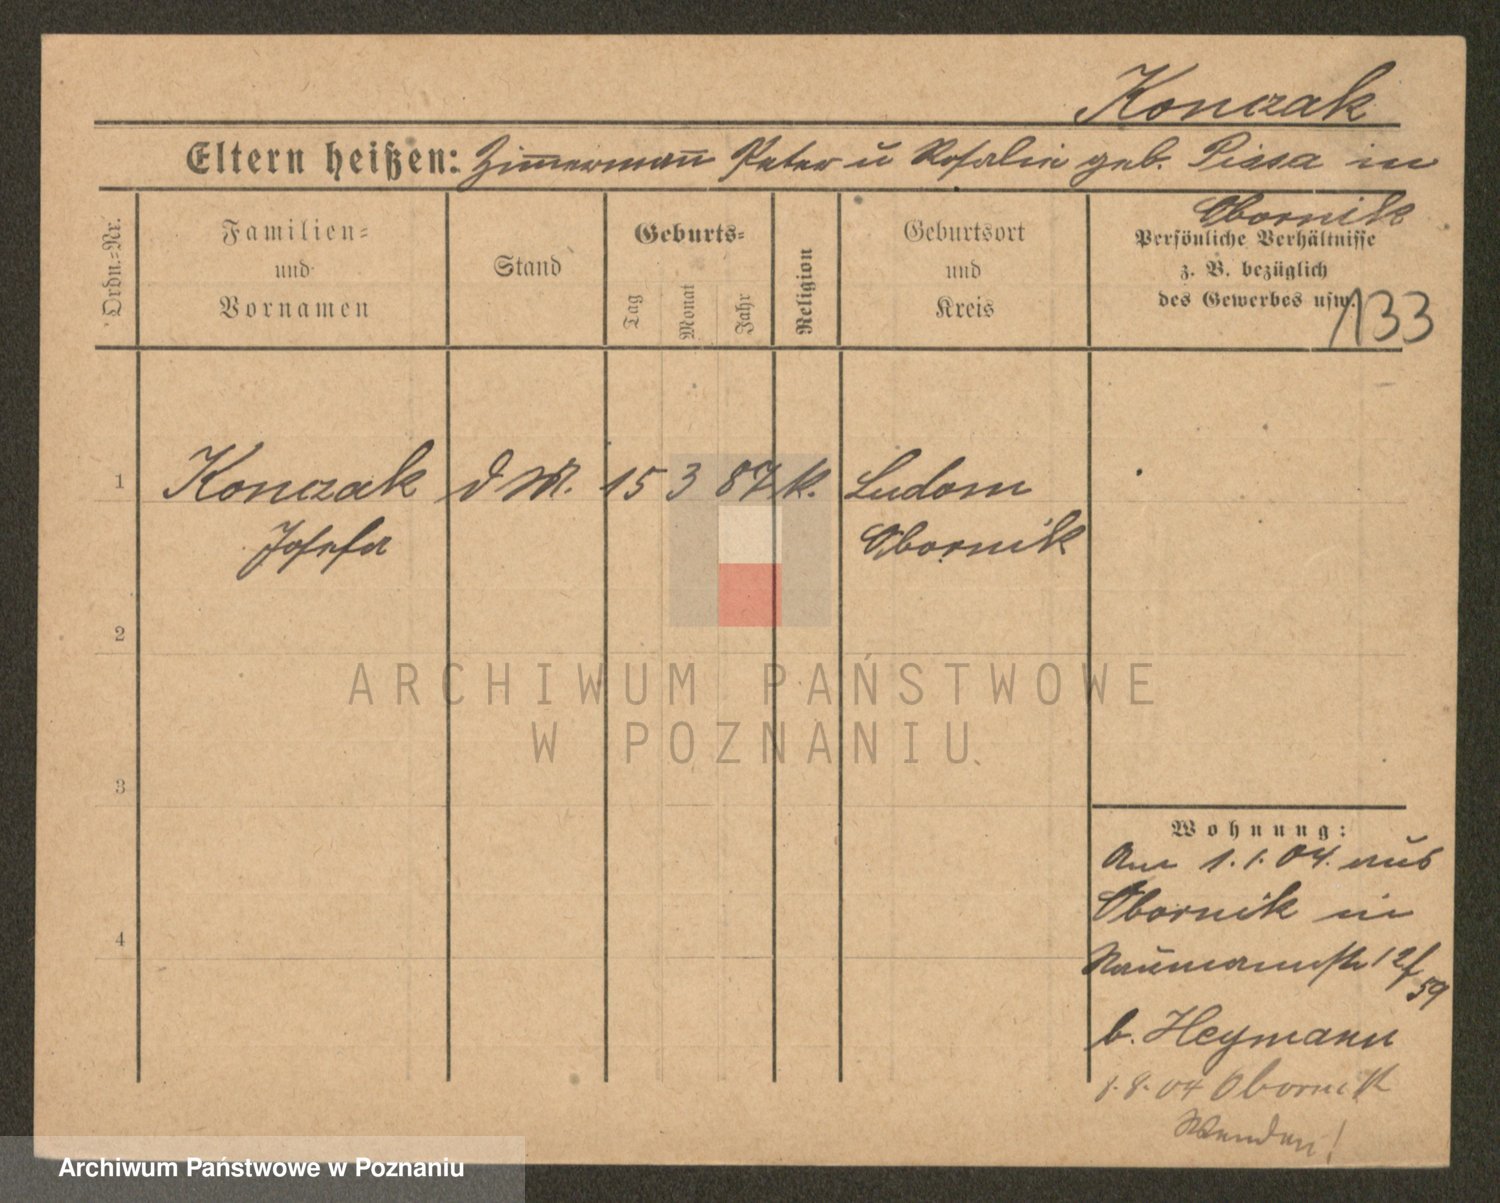 Konczak
Eltern heißen: Zimmermann Peter u Rosalie geb. Pissa in
Obornik
Ordn.-Nr.
Familien-
und
Vornamen
Stand
Geburts-
Tag
Monat
Jahr
Religion
Geburtsort
und
Kreis
Persönliche Verhältnisse
z. B. bezüglich
des Gewerbes usw.
133
1 Konczak d M. 15 3 87 k. Ludom
Josefa Obornik
2
3
4
ARCHIWUM PAŃSTWOWE
W POZNANIU
Wohnung:
Am 1.1.04. aus
Obornik in
Naumannstr 12/
59
b. Heymann
1.8.04 Obornik
Wenden!
Archiwum Państwowe w Poznaniu